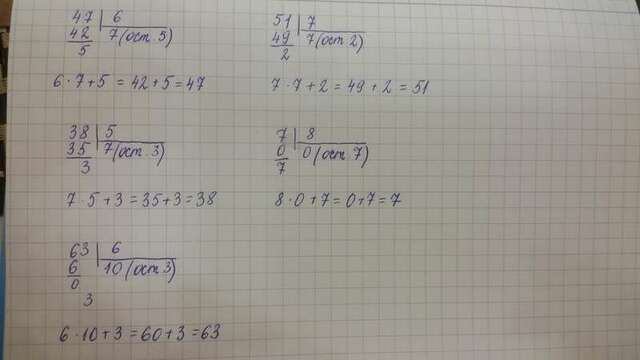 47 | 6
42 | 7 (ост 5)
5
6 · 7 + 5 = 42 + 5 = 47
51 | 7
49 | 7 (ост 2)
2
7 · 7 + 2 = 49 + 2 = 51
38 | 5
35 | 7 (ост 3)
3
7 · 5 + 3 = 35 + 3 = 38
7 | 8
0 | 0 (ост 7)
7
8 · 0 + 7 = 0 + 7 = 7
63 | 6
6 | 10 (ост 3)
0
3
6 · 10 + 3 = 60 + 3 = 63